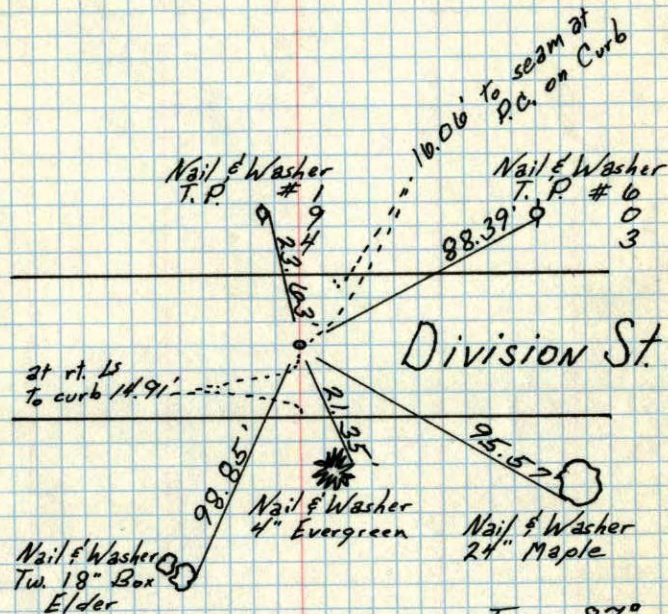 16.06' to seam at
P.C. on Curb
Nail & Washer
T.P. # 1
9
4
Nail & Washer
T.P. # 6
0
3
23.63
88.39'
Division St.
at rt. Ls
to curb 14.91'
98.85'
21.35'
95.57
Nail & Washer
4" Evergreen
Nail & Washer
24" Maple
Nail & Washer
Tw. 18" Box
Elder